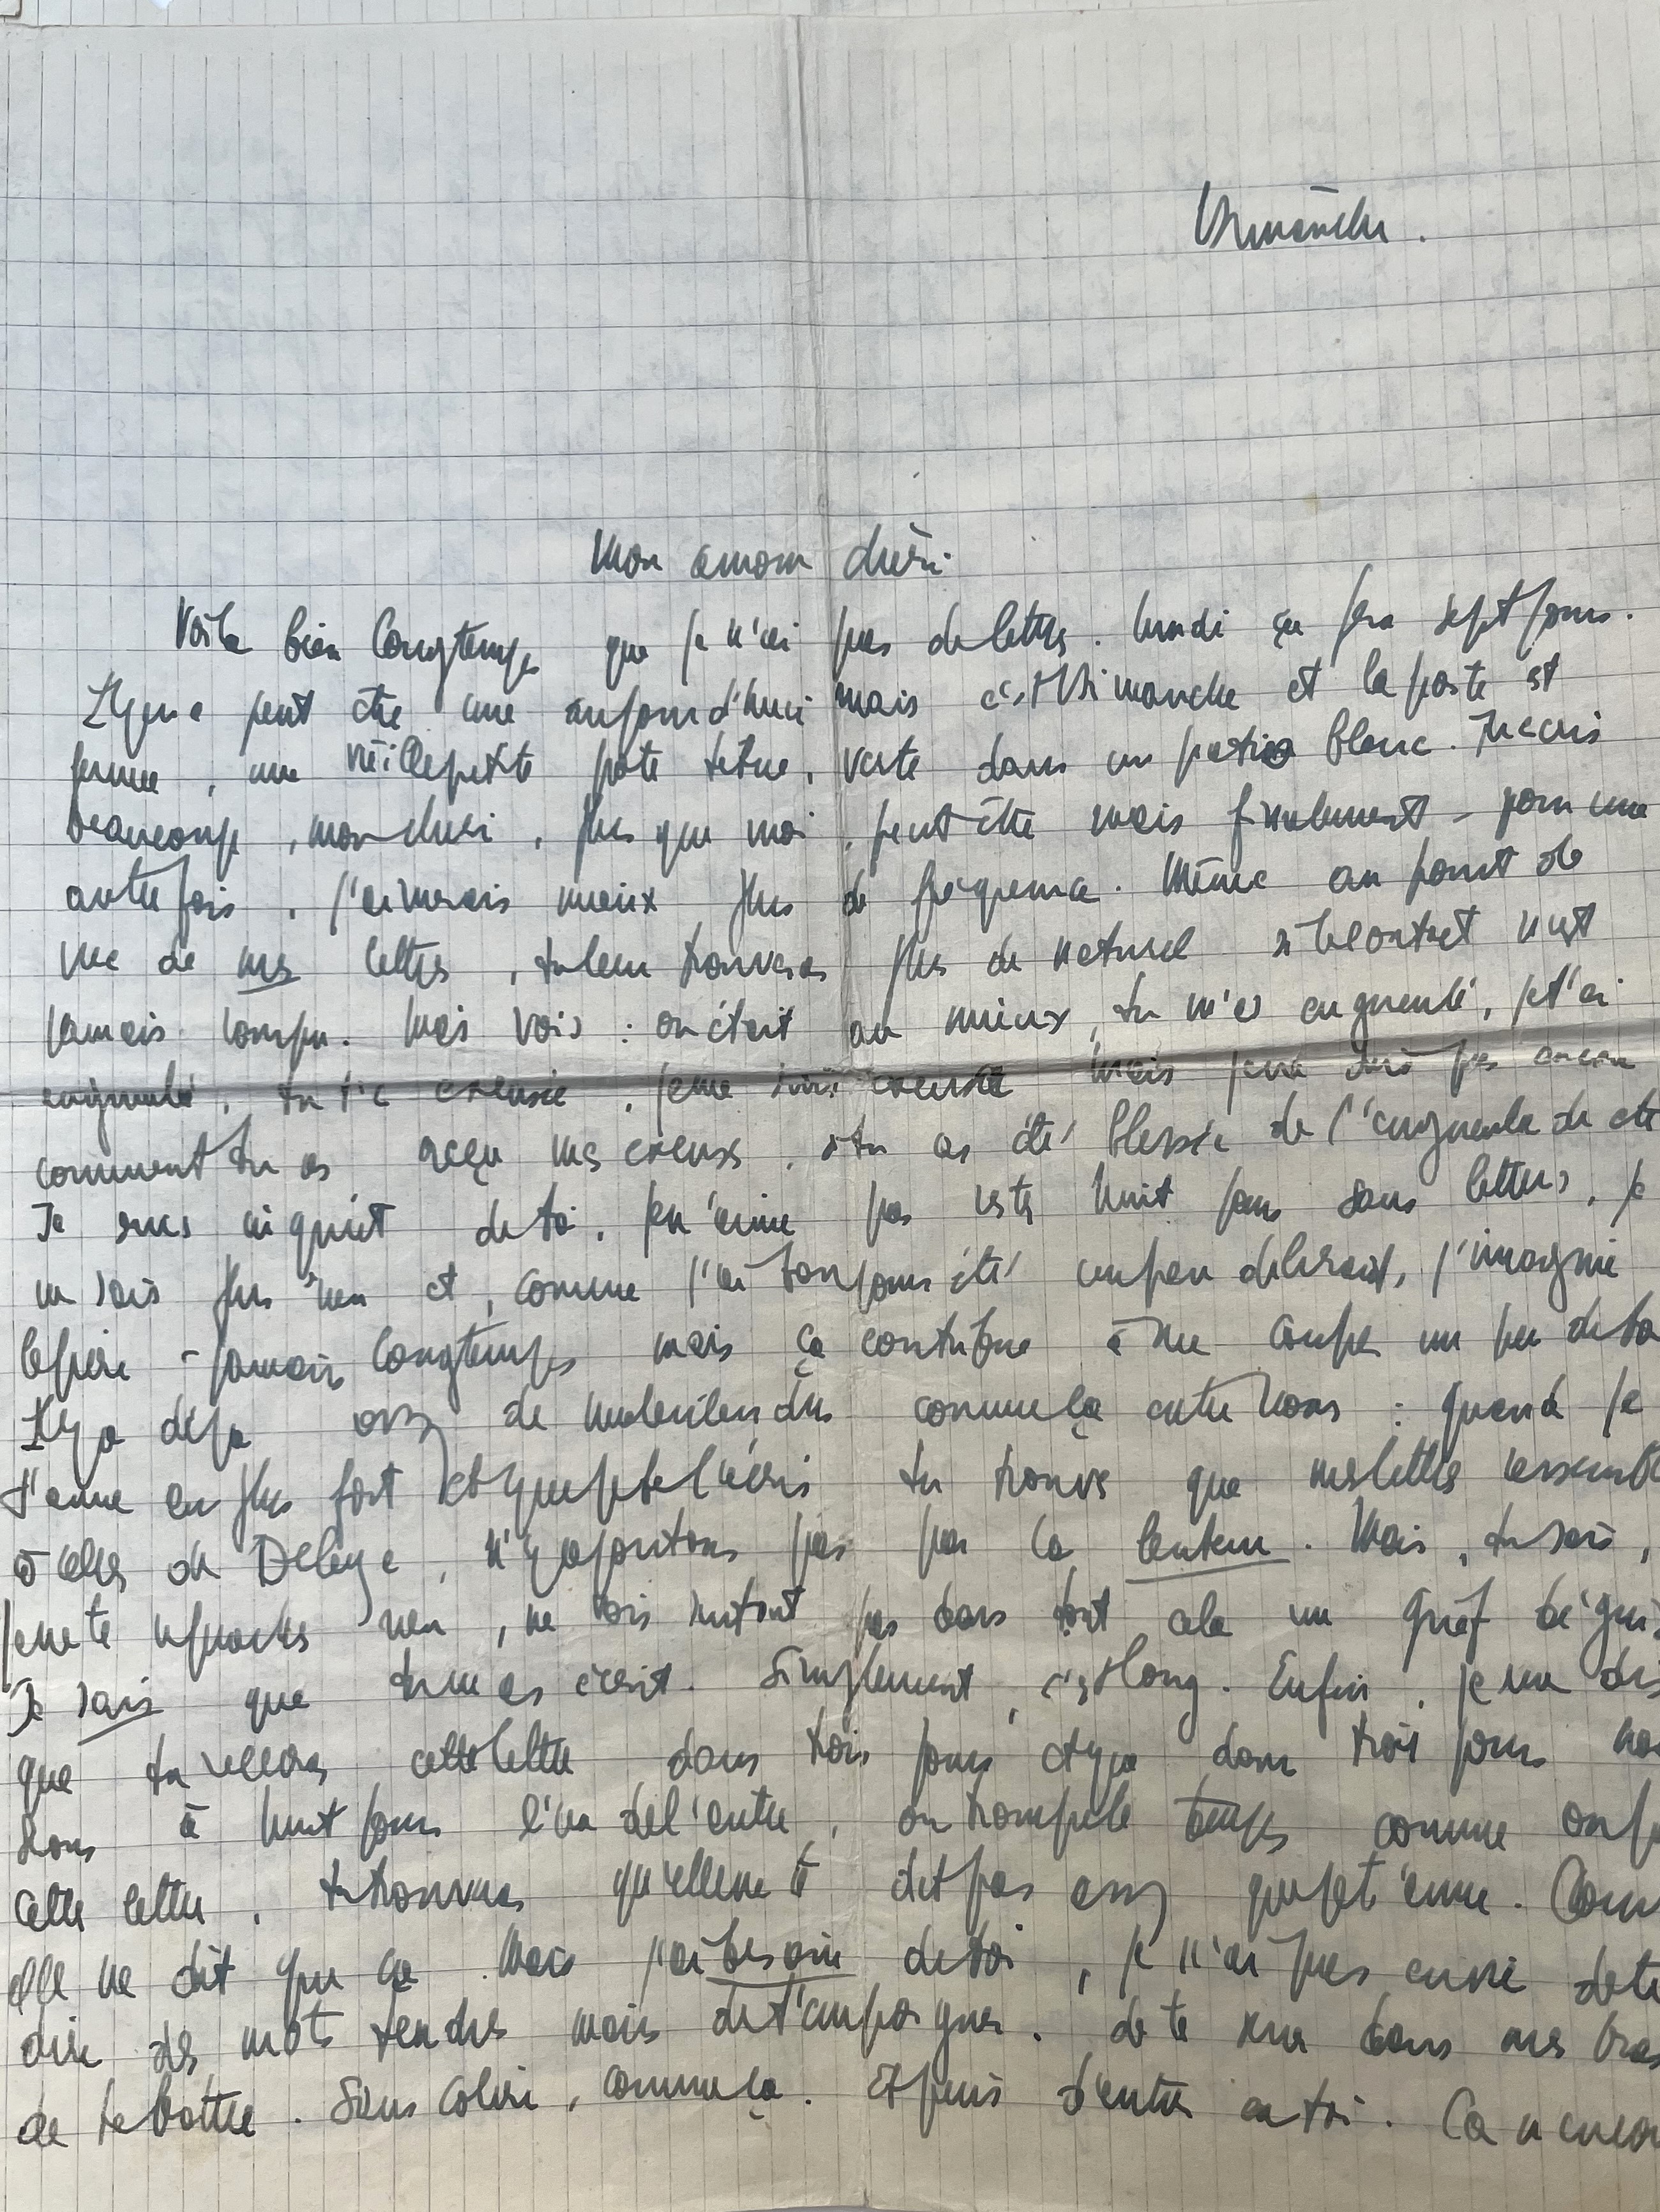 Dimanche.
Mon amour chéri
Voilà bien longtemps que je n'ai pas de lettres. Lundi ça fera sept jours.
Il y en a peut être une aujourd'hui mais c'est Dimanche et la poste est
fermée, une vieille petite poste têtue, verte dans un patio blanc. Tu écris
beaucoup, mon chéri, plus que moi, peut être mais finalement – pour une
autre fois, j'aimerais mieux plus de fréquence. Même au point de
vue de mes lettres, tu leur trouveras plus de naturel si le contact n'est
jamais rompu. Mais vois : on était au mieux, tu m'as engueulé, je t'ai
engueulé, tu t'es excusée, je me suis excusé mais je ne sais pas encore
comment tu as reçu mes excuses, si tu as été blessée de l'engueulade etc
Je suis inquiet de toi, je n'aime pas rester huit jours sans lettres, je
ne sais plus rien et, comme j'ai toujours été un peu délirant, j'imagine
le pire – jamais longtemps mais ça contribue à me couper un peu de toi
Il y a déjà assez de malentendus comme ça entre nous : quand je
t'aime au plus fort et que je te l'écris tu trouves que mes lettres ressemble
à celles de Delay, n'y ajoutons pas par la lenteur. Mais, tu sais,
je ne te reproches rien, ne vois surtout pas dans tout cela un grief dégui
Je sais que tu m'as écrit. Simplement, c'est long. Enfin, je me dis
que tu recevras cette lettre dans trois jours et que dans trois jours nous
serons à huit jours l'un de l'autre, on trompe le temps comme on p
cette lettre, tu trouveras qu'elle ne te dit pas assez que je t'aime. Com
elle ne dit que ça. Mais j'ai besoin de toi, je n'ai pas envie de te
dire des mots tendres mais de t'empoigner, de te dans mes bras
de te battre. Sans colère, comme ça. Et puis d'entrer en toi. Ca